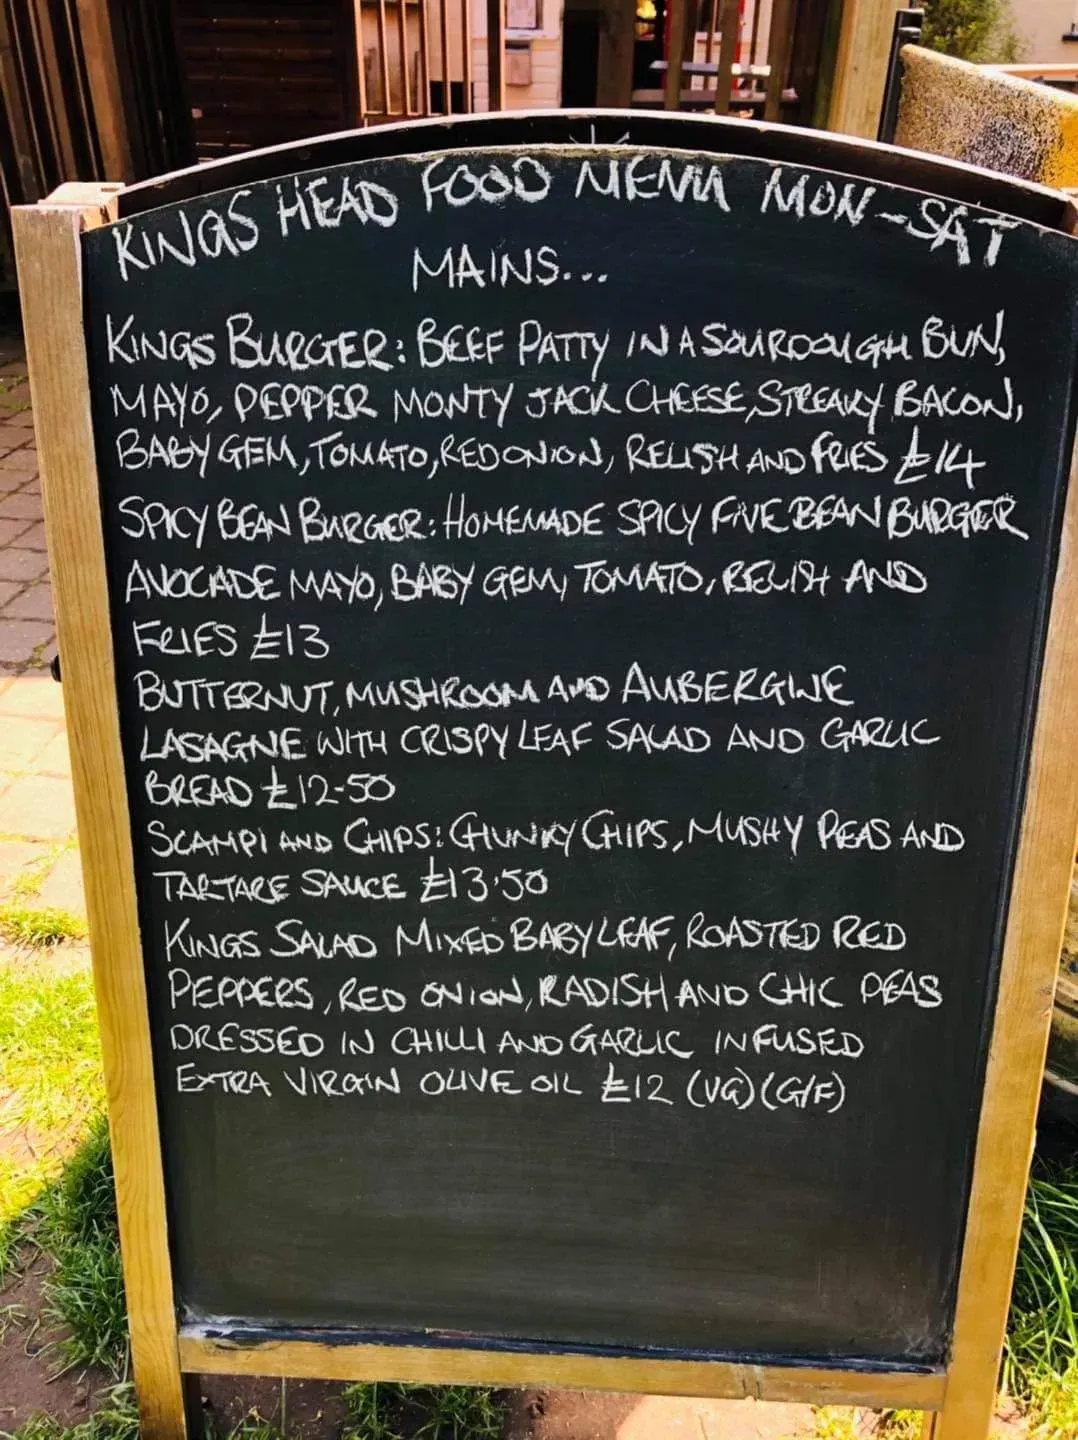 KINGS HEAD FOOD MENU MON-SAT
MAINS...
KINGS BURGER: BEEF PATTY IN A SOURDOUGH BUN,
MAYO, PEPPER MONTY JACK CHEESE, STREAKY BACON,
BABY GEM, TOMATO, RED ONION, RELISH AND FRIES £14
SPICY BEAN BURGER: HOMEMADE SPICY FIVE BEAN BURGER
AVOCADE MAYO, BABY GEM, TOMATO, RELISH AND
FRIES £13
BUTTERNUT, MUSHROOM AND AUBERGINE
LASAGNE WITH CRISPY LEAF SALAD AND GARLIC
BREAD £12-50
SCAMPI AND CHIPS: CHUNKY CHIPS, MUSHY PEAS AND
TARTARE SAUCE £13.50
KINGS SALAD MIXED BABY LEAF, ROASTED RED
PEPPERS, RED ONION, RADISH AND CHIC PEAS
DRESSED IN CHILLI AND GARLIC INFUSED
EXTRA VIRGIN OLIVE OIL £12 (VG) (G/F)